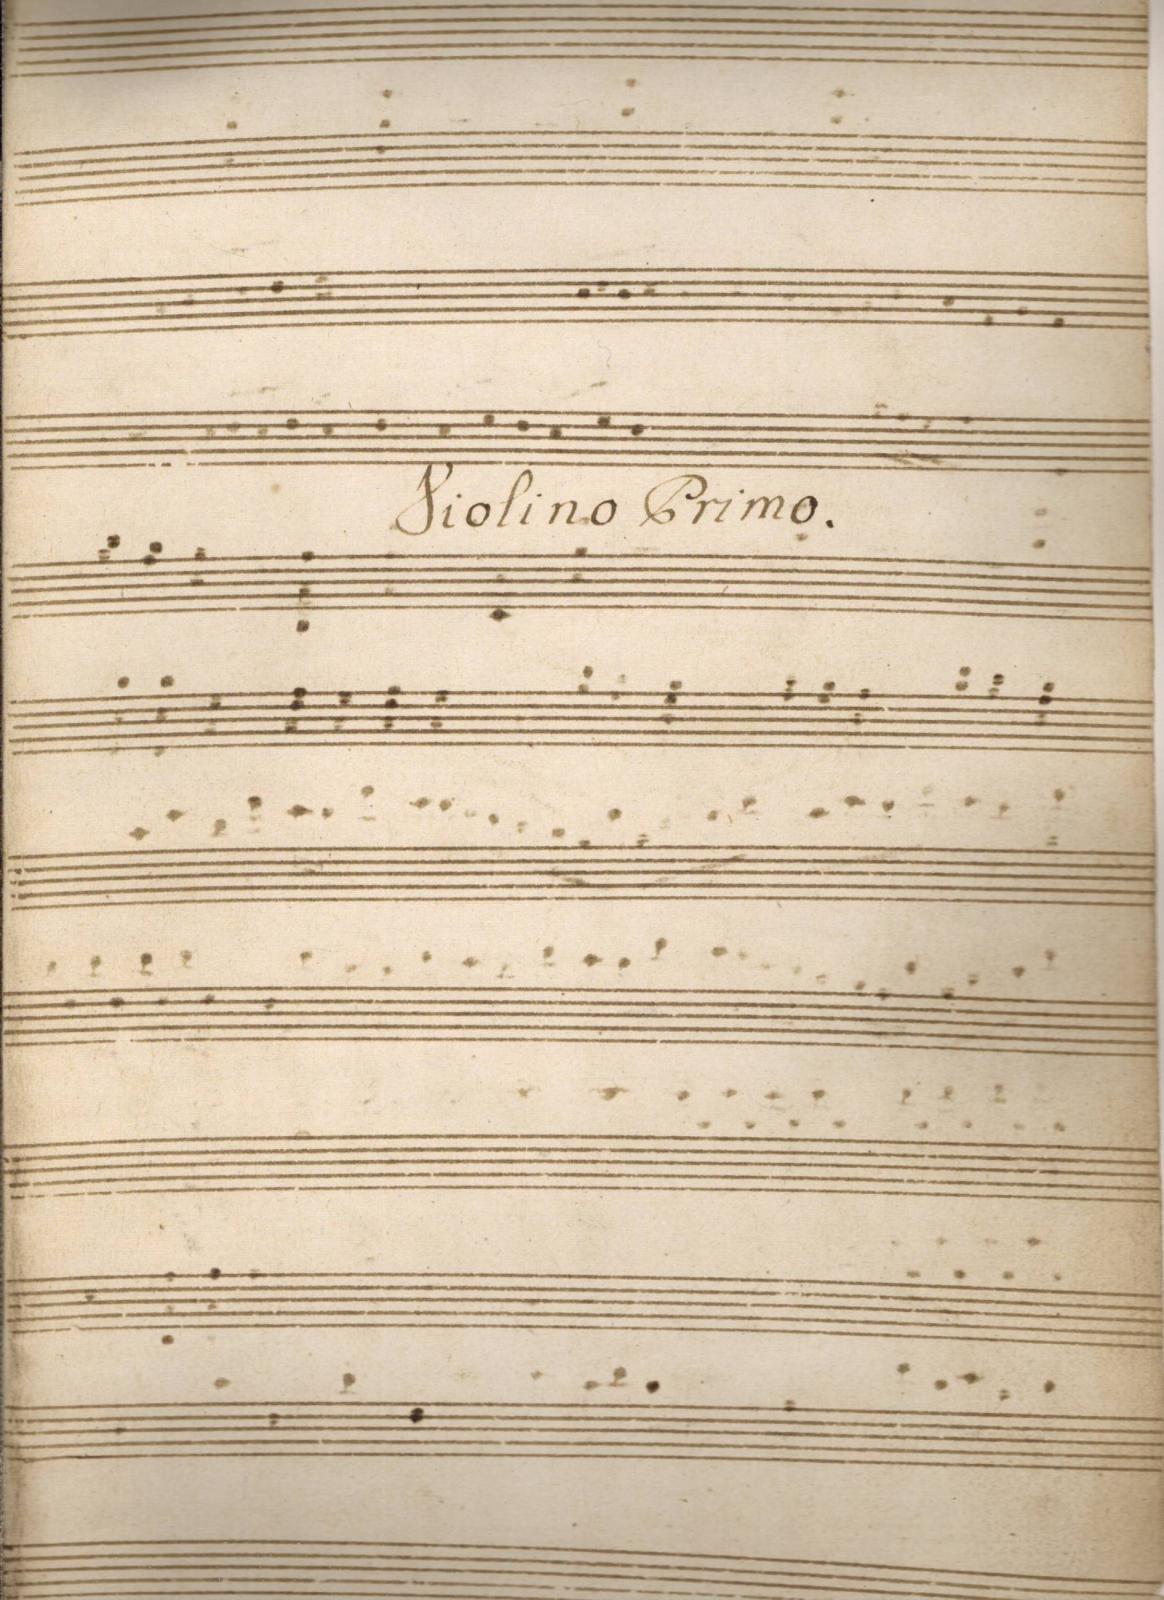 Violino Primo.